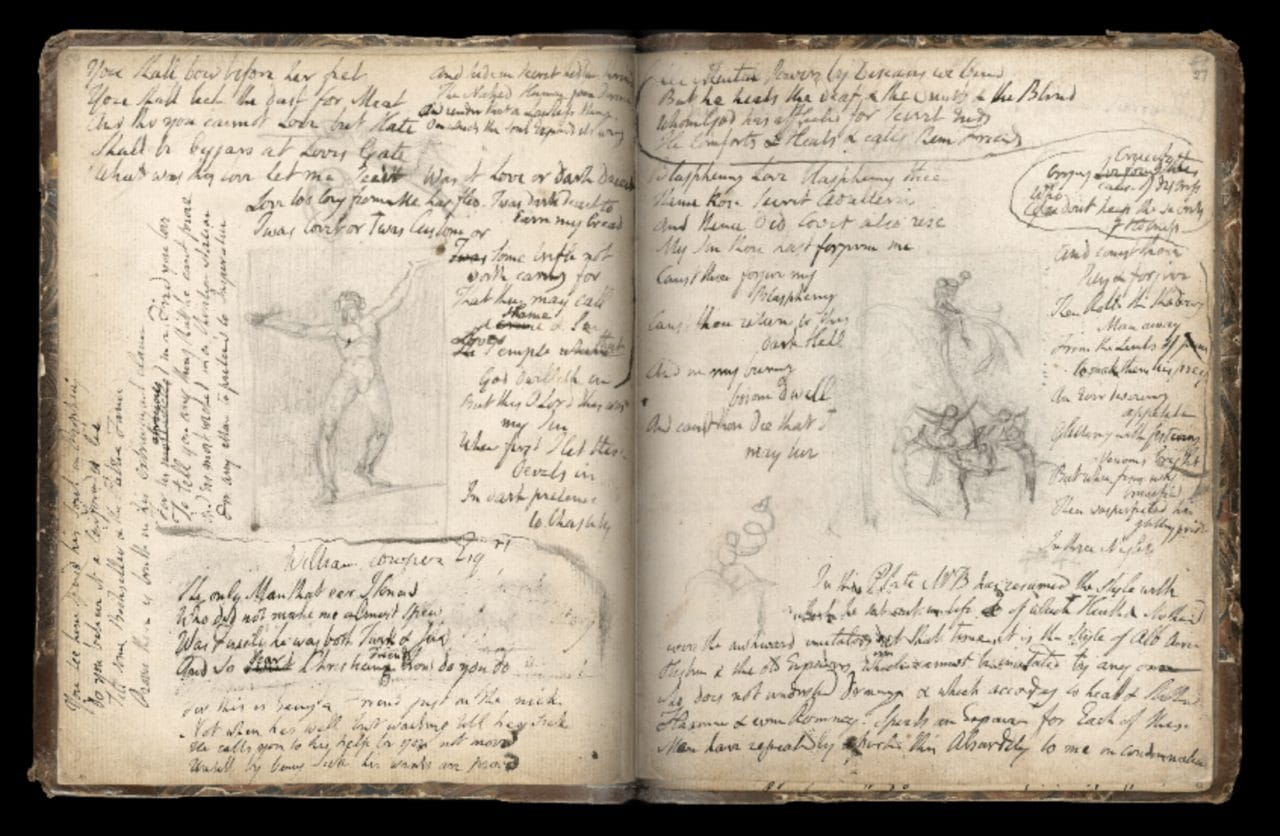 You shall bow before her feet
You shall lick the dust for Meat
And tho you cannot Love but Hate
Shall be beggars at Loves Gate
What was thy love Let me see it
Was it Love or Dark Deceit
Love too long from Me has fled.
Twas dark deceit to
Earn my bread
Twas Covet or Twas Custom or
Twas Some trifle not
worth caring for
That they may call
Shame
a crime & Sin
Loves
The Temple where that
God dwelleth in
But this O Lord this was
my Sin
When first I let these
Devils in
In dark pretence
to Chastity
And hide in secret hidden
The Naked Human form divine
And render that a Lawless thing
On which the Soul Expands its wing
You see him spend his Soul in Prophecy
Do you believe it a confounded lie
Till some Bookseller & the Public Fame
Prove there is truth in his extravagant claim
For tis atrocious in a Friend you love
To tell you any thing that he cant prove
And tis most wicked in a Christian Nation
For any Man to pretend to Inspiration
William Cowper Esqre
The only Man that eer I knew
Who did not make me almost spew
Was Fuseli he was both Turk & Jew
And so dear Christian Friends how do you do
For this is being a Friend just in the nick
Not when hes well but waiting till hes sick
He calls you to his help be you not movd
Untill by being Sick his wants are provd
37
But he heals the deaf & the Dumb & the Blind
Whom God has afflicted for Secret Ends
He comforts & Heals & calls them Friends
Blaspheming Love blaspheming thee
Thence Rose Secret Adulteries
And thence did Covet also rise
My Sin thou hast forgiven me
Canst thou forgive my
Blasphemy
Canst thou return to this
dark Hell
And in my burning
bosom dwell
And canst thou Die that I
may live
And canst thou
Pity & forgive
Then Rolld the shadowy
Man away
From the Limbs of Jesus
to make them his prey
An Ever devouring
appetite
Glittering with festering
Venoms bright
In three Nights
In this Plate Mr B has resumed the style with
which he set out in life of which Heath & Stothard
were the awkward imitators at that time it is the style of Alb Durers
Histries & the old Engravers which cannot be imitated by any one
who does not understand Drawing & which according to Heath & Stothard
Flaxman & even Romney. Spoils an Engraver for Each of these
Men have repeatedly asserted this Absurdity to me in condemnation